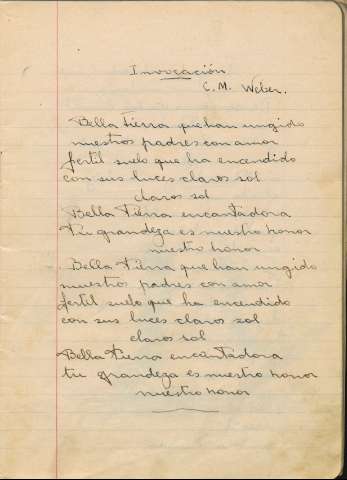 Invocación
C. M. Weber.
Bella tierra que han ungido
nuestros padres con amor
fertil suelo que ha encendido
con sus luces claros sol
claros sol
Bella Tierra encantadora
tu grandeza es nuestro honor
nuestro honor
Bella Tierra que han ungido
nuestros padres con amor
fertil suelo que ha encendido
con sus luces claro sol
claro sol
Bella Tierra encantadora
tu grandeza es nuestro honor
nuestro honor